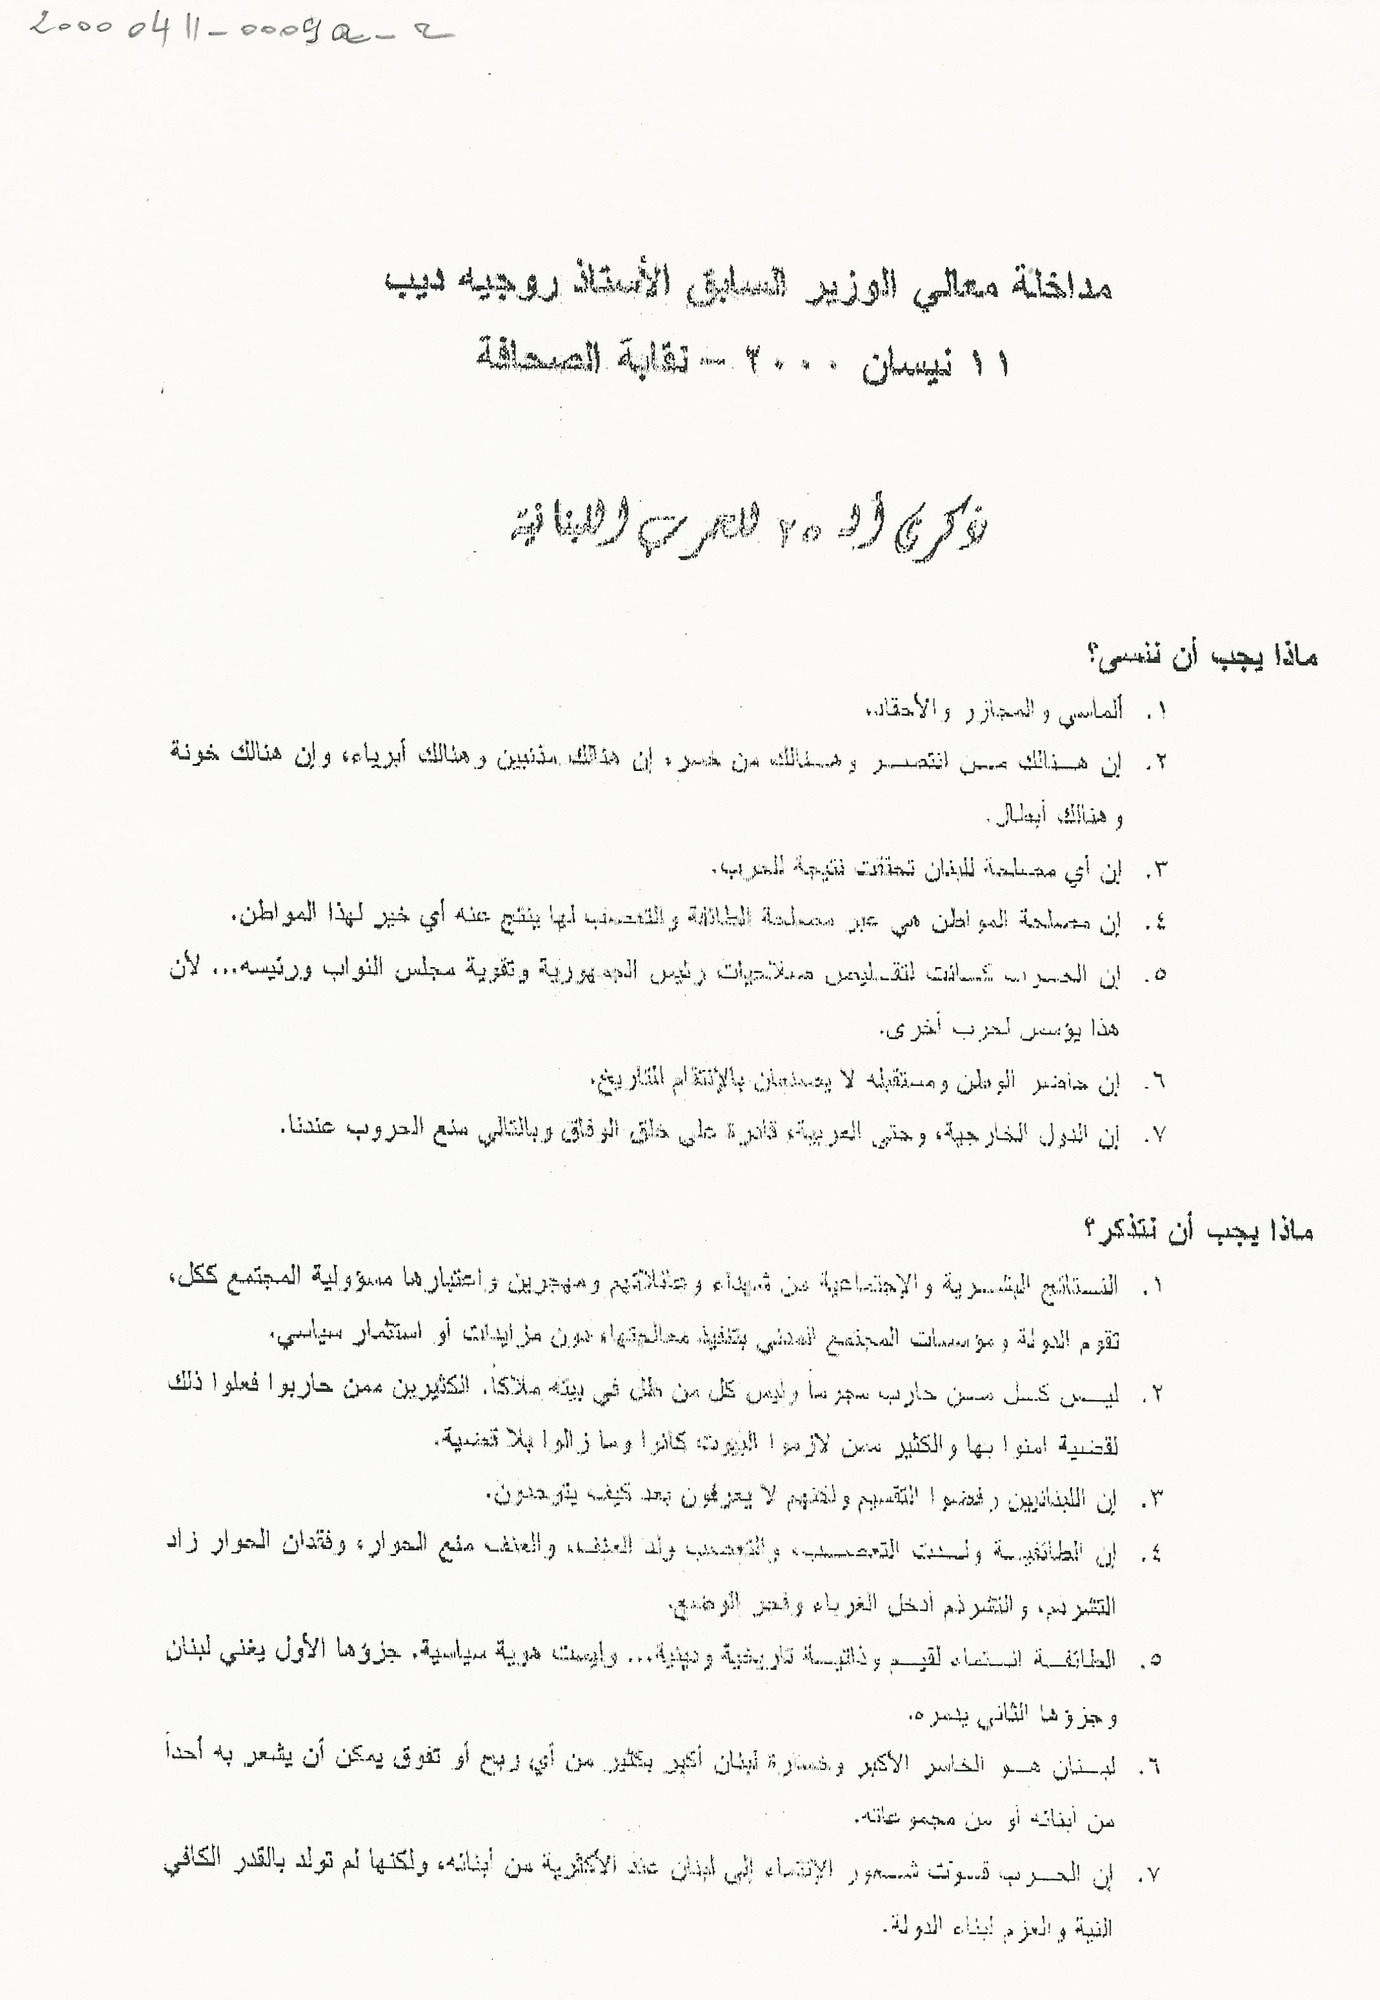 2000 04 11-0009a-2
مداخلة معالي الوزير السابق الأستاذ روجيه ديب
١١ نيسان ٢٠٠٠ - نقابة الصحافة
ذكرى أل ٢٥ للحرب اللبنانية
ماذا يجب أن ننسى؟
١. ألماسي والمجازر والأحقاد.
٢. إن هنالك من انتصر وهنالك من خسر، إن هنالك مذنبين وهنالك أبرياء، وإن هنالك خونة
وهنالك أبطال.
٣. إن أي مصلحة للبنان تحققت نتيجة للحرب.
٤. إن مصلحة المواطن هي عبر مصلحة الطائفة والتعصب لها ينتج عنه أي خير لهذا المواطن.
٥. إن الحرب كانت لتقليص صلاحيات رئيس الجمهورية وتقوية مجلس النواب ورئيسه... لأن
هذا يؤسس لحرب أخرى.
٦. إن حاضر الوطن ومستقبله لا يصنعان بالإنتقام للتاريخ.
٧. إن الدول الخارجية، وحتى العربية، قادرة على خلق الوفاق وبالتالي منع الحروب عندنا.
ماذا يجب أن نتذكر؟
١. النتائج البشرية والإجتماعية من شهداء وعائلاتهم ومهجرين واعتبارها مسؤولية المجتمع ككل،
تقوم الدولة ومؤسسات المجتمع المدني بتنفيذ معالجتها، دون مزايدات أو استثمار سياسي.
٢. ليس كل من حارب مجرماً وليس كل من ظل في بيته ملاكاً. الكثيرين ممن حاربوا فعلوا ذلك
لقضية امنوا بها والكثير ممن لازموا البيوت كانوا وما زالوا بلا قضية.
٣. إن اللبنانيين رفضوا التقسيم ولكنهم لا يعرفون بعد كيف يتوحدون.
٤. إن الطائفية ولدت التعصب، والتعصب ولد العنف، والعنف منع الحوار، وفقدان الحوار زاد
التشرذم، والتشرذم أدخل الغرباء وفجر الوضع.
٥. الطائفة انتماء لقيم وذاتية تاريخية ودينية... وليست هوية سياسية. جزؤها الأول يغني لبنان
وجزؤها الثاني يدمره.
٦. لبنان هو الخاسر الأكبر وخسارة لبنان أكبر بكثير من أي ربح أو تفوق يمكن أن يشعر به أحداً
من أبنائه أو من مجموعاته.
٧. إن الحرب قوت شعور الإنتماء إلى لبنان عند الأكثرية من أبنائه، ولكنها لم تولد بالقدر الكافي
النية والعزم لبناء الدولة.